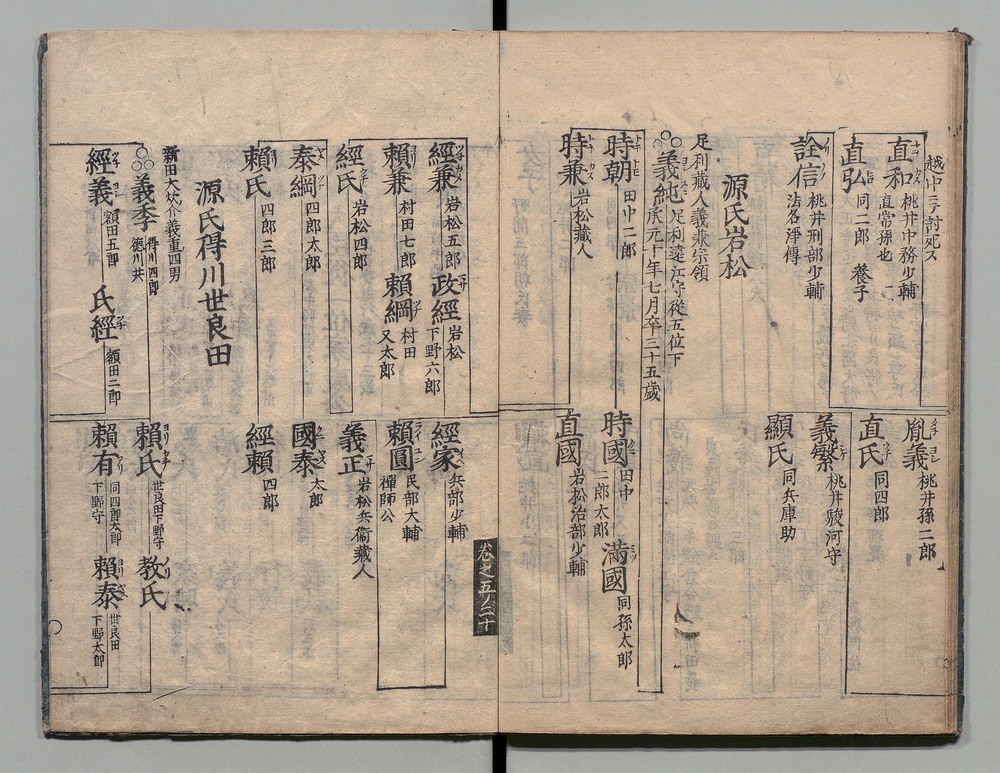 越中ニテ討死ス
直和 桃井中務少輔
直常孫也
直弘 同二郎 養子
詮信 桃井刑部少輔
法名淨傳
胤義 桃井孫二郎
直氏 同四郎
義繁 桃井駿河守
顯氏 同兵庫助
源氏岩松
足利藏人義兼宗領
義純 足利遠江守從五位下
承元十年七月卒三十五歲
時朝 田中二郎
時兼 岩松藏人
時國 田中
二郎太郎
滿國 同孫太郎
直國 岩松治部少輔
卷之五ノ二十
經兼 岩松五郎
政經 岩松
下野六郎
賴兼 村田七郎
賴綱 村田
又太郎
經氏 岩松四郎
泰綱 四郎太郎
賴氏 四郎三郎
經家 兵部少輔
賴圓 民部大輔
禪師公
義正 岩松兵衞藏人
國泰 太郎
經賴 四郎
源氏得川世良田
新田大炊介義重四男
義季 得川四郎
德川共
經義 額田五郎
氏經 額田二郎
賴氏 世良田下野守
教氏 世良田
賴有 同四郎太郎
下野守
賴泰 下野太郎